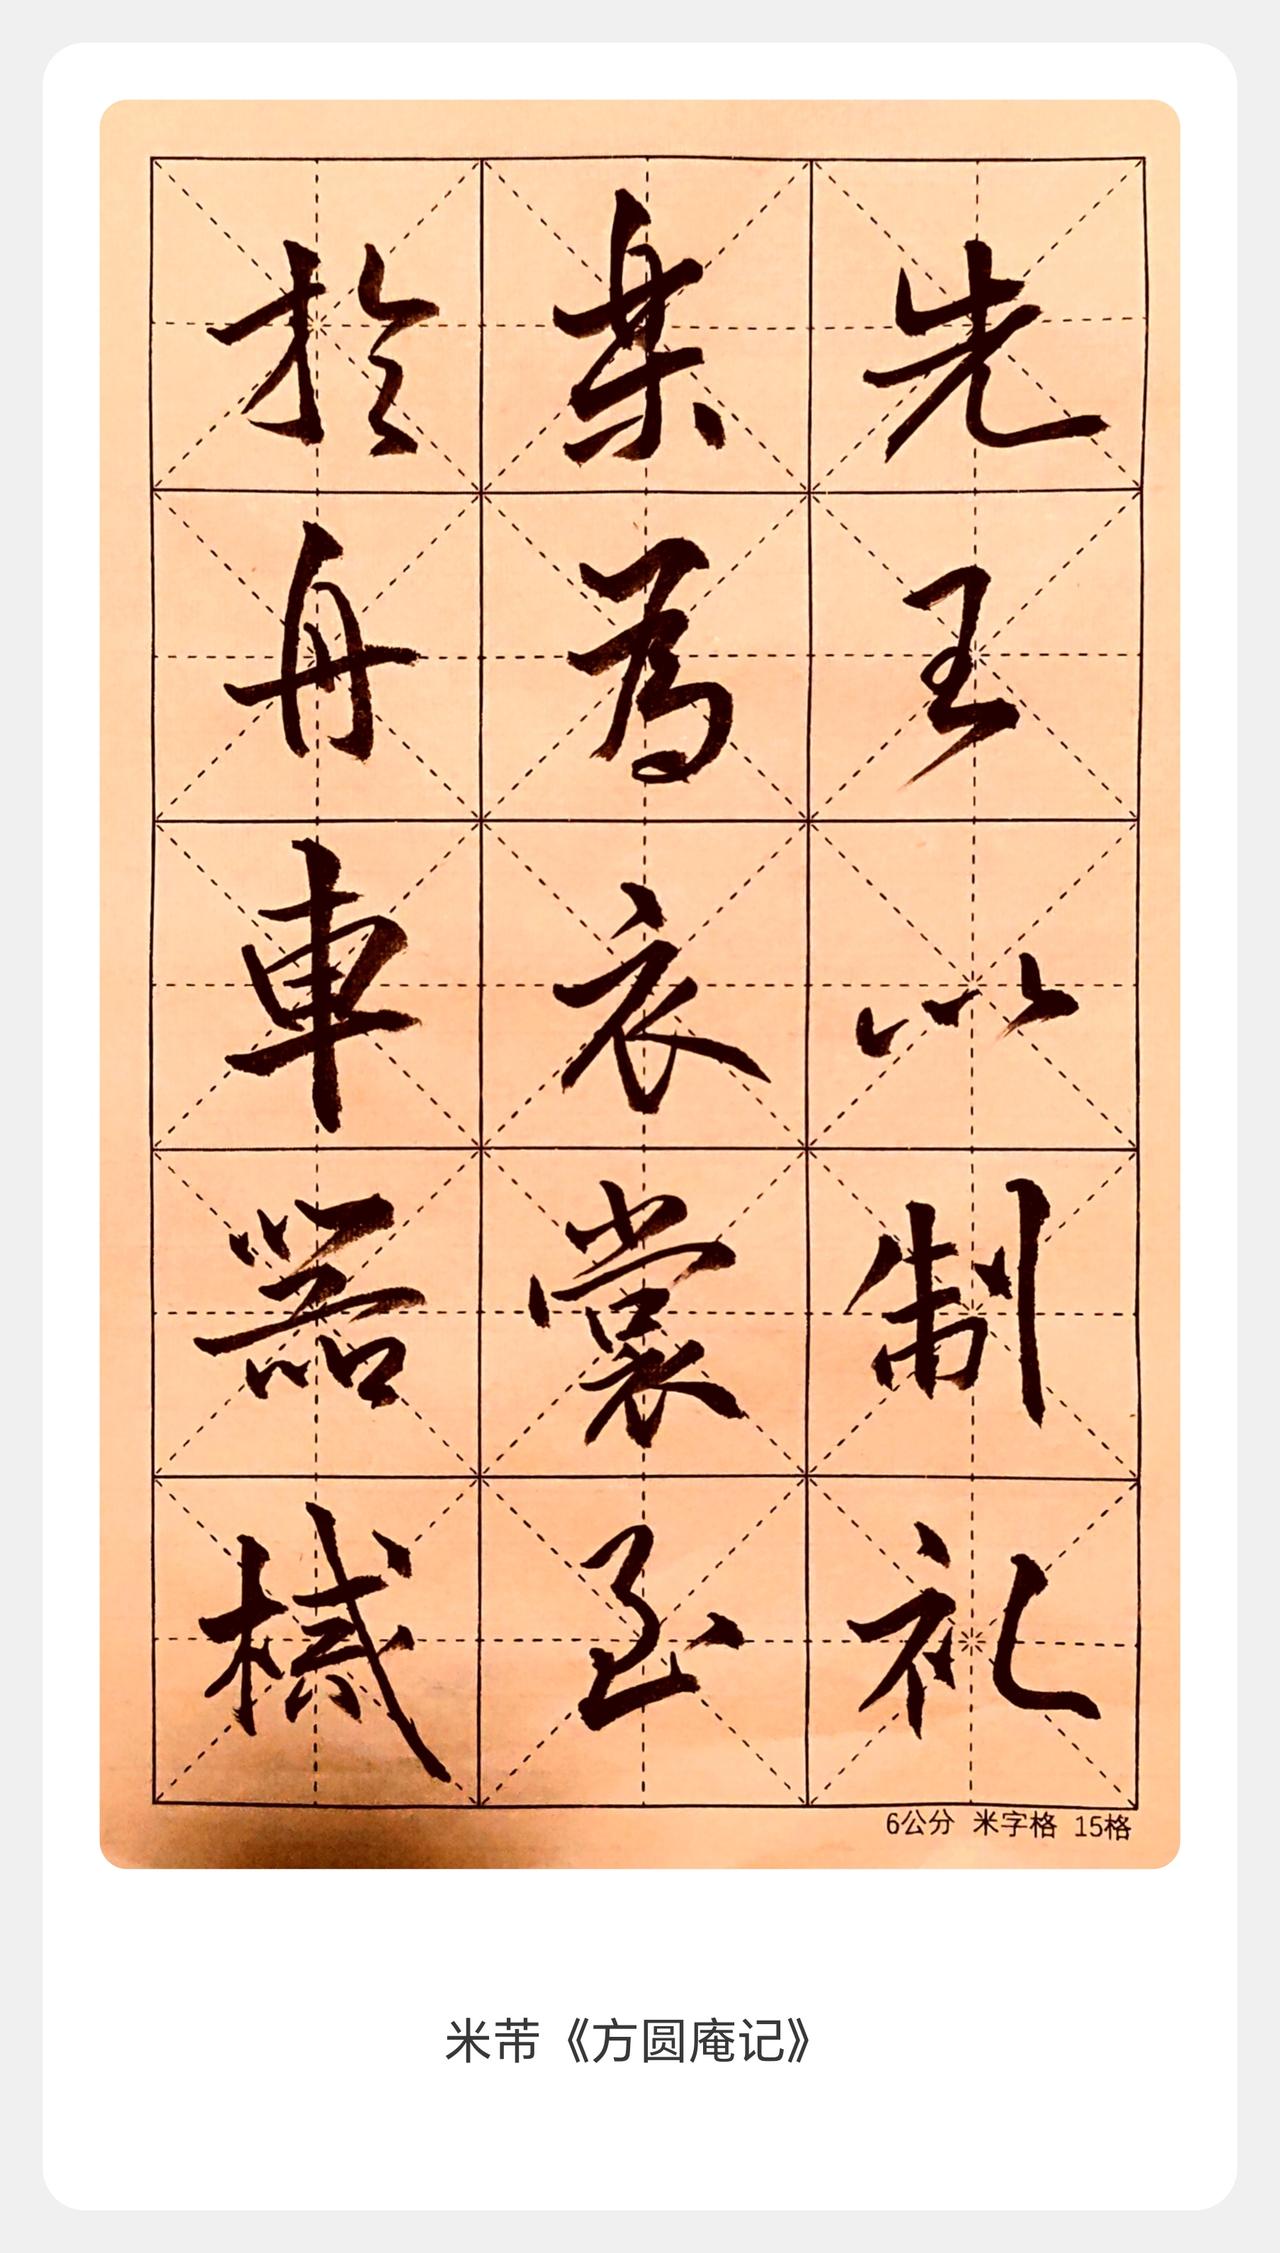 先王以制礼
樂為衣裳至
於舟車器械
6公分 米字格 15格
米芾《方圆庵记》